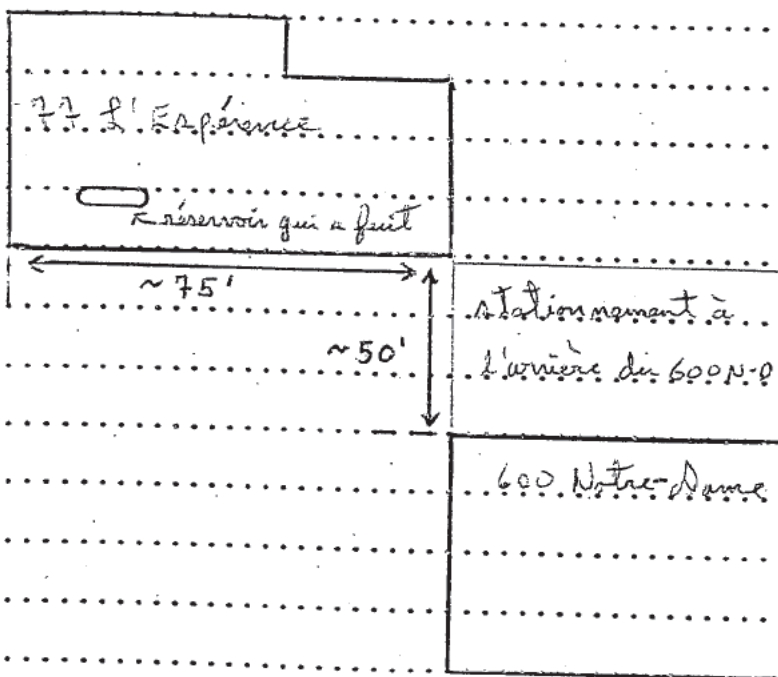 77 L'Espérance
réservoir qui a fuit
~ 75'
~ 50'
stationnement à
l'arrière du 600 N-D
600 Notre-Dame